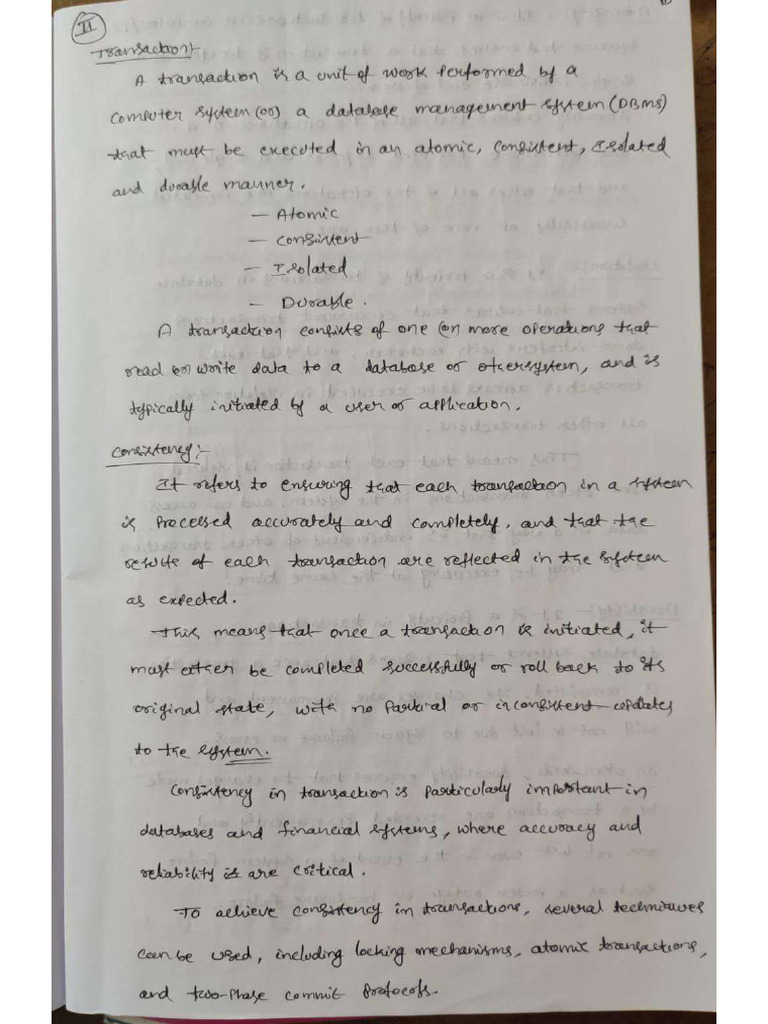 II
Transaction:-
A transaction is a unit of work performed by a
computer system (or) a database management system (DBMS)
that must be executed in an atomic, consistent, Isolated
and durable manner.
- Atomic
- Consistent
- Isolated
- Durable.
A transaction consists of one (or) more operations that
read (or) write data to a database or othersystem, and is
typically initiated by a user or application.
Consistency:-
It refers to ensuring that each transaction in a system
is processed accurately and completely, and that the
results of each transaction are reflected in the system
as expected.
This means that once a transaction is initiated, it
must either be completed successfully or roll back to its
original state, with no partial or inconsistent updates
to the system.
Consistency in transaction is particularly important in
databases and financial systems, where accuracy and
reliability is are critical.
To achieve consistency in transactions, several techniques
can be used, including locking mechanisms, atomic transactions,
and two-phase commit protocols.